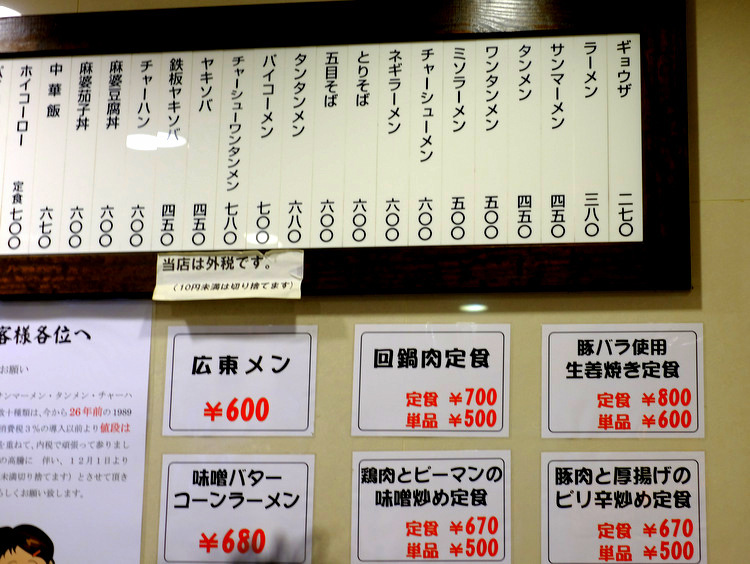 ギョウザ 二七〇
ラーメン 三八〇
サンマーメン 四五〇
タンメン 四五〇
ワンタンメン 五〇〇
ミソラーメン 五〇〇
チャーシューメン 六〇〇
ネギラーメン 六〇〇
とりそば 六〇〇
五目そば 六〇〇
タンタンメン 六八〇
パイコーメン 七〇〇
チャーシューワンタンメン 七八〇
ヤキソバ 四五〇
鉄板ヤキソバ 四五〇
チャーハン 六〇〇
麻婆豆腐丼 六〇〇
麻婆茄子丼 六〇〇
中華飯 六七〇
ホイコーロー 定食 七〇〇
当店は外税です。
(10円未満は切り捨てます)
客様各位へ
お願い
サンマーメン・タンメン・チャーハ
数十種類は、今から26年前の1989
消費税3%の導入以前より値段は
を重ねて、内税で頑張って参りまし
の高騰に 伴い、12月1日より
未満切り捨てます)とさせて頂き
ろしくお願い致します。
広東メン
¥600
回鍋肉定食
定食 ¥700
単品 ¥500
豚バラ使用
生姜焼き定食
定食 ¥800
単品 ¥600
味噌バター
コーンラーメン
¥680
鶏肉とピーマンの
味噌炒め定食
定食 ¥670
単品 ¥500
豚肉と厚揚げの
ピリ辛炒め定食
定食 ¥670
単品 ¥500